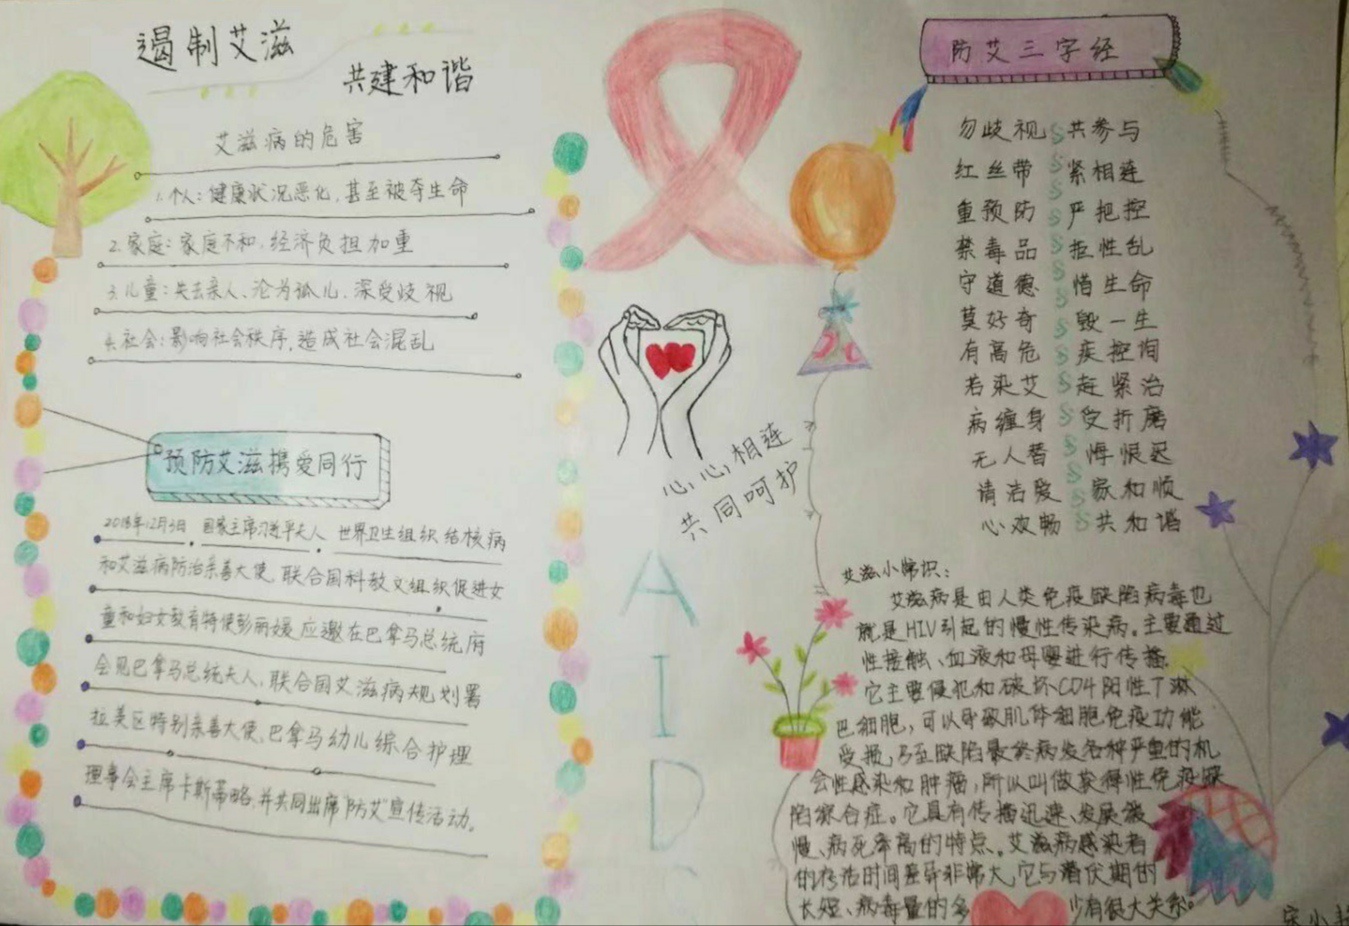 遏制艾滋
共建和谐
艾滋病的危害
1.个人：健康状况恶化，甚至被夺生命
2.家庭：家庭不和，经济负担加重
3.儿童：失去亲人、沦为孤儿、深受歧视
4.社会：影响社会秩序，造成社会混乱
预防艾滋携爱同行
2018年12月3日，国家主席习近平夫人、世界卫生组织结核病
和艾滋病防治亲善大使、联合国科教文组织促进女
童和妇女教育特使彭丽媛应邀在巴拿马总统府
会见巴拿马总统夫人、联合国艾滋病规划署
拉美区特别亲善大使、巴拿马幼儿综合护理
理事会主席卡斯蒂略，并共同出席"防艾"宣传活动。
心心相连
共同呵护
AID
防艾三字经
勿歧视 共参与
红丝带 紧相连
重预防 严把控
禁毒品 拒性乱
守道德 惜生命
莫好奇 毁一生
有高危 疾控询
若染艾 赶紧治
病缠身 受折磨
无人替 悔恨迟
请洁爱 家和顺
心欢畅 共和谐
艾滋小常识：
艾滋病是由人类免疫缺陷病毒也
就是HIV引起的慢性传染病。主要通过
性接触、血液和母婴进行传播
它主要侵犯和破坏CD4阳性T淋
巴细胞，可以导致机体细胞免疫功能
受损，乃至缺陷最终病发各种严重的机
会性感染和肿瘤，所以叫做获得性免疫缺
陷综合症。它具有传播迅速、发展缓
慢、病死率高的特点。艾滋病感染者
的存活时间差异非常大，它与潜伏期的
长短、病毒量的多少有很大关系。
宋小